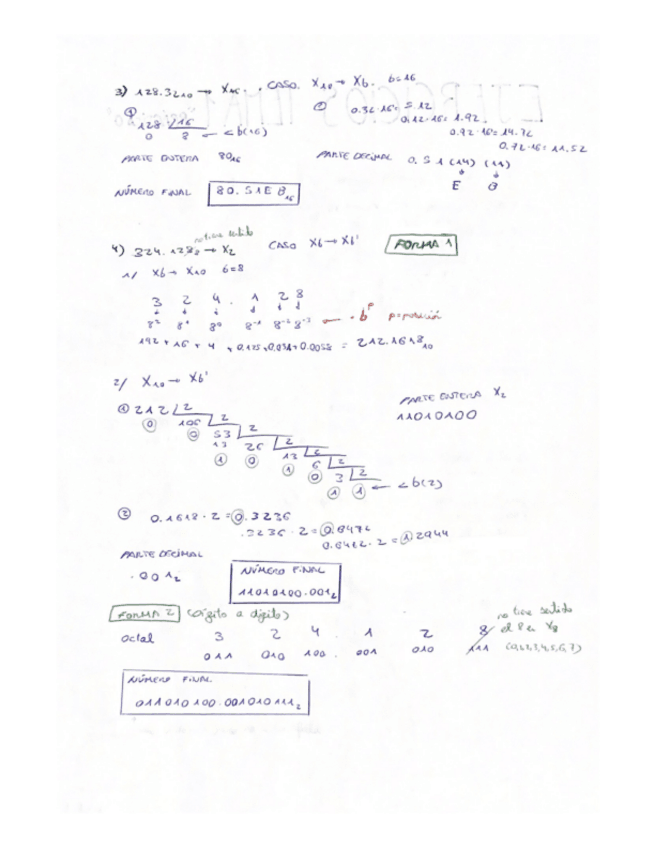 3) 128.32₁₀ → X₁₆. CASO. X₁₀ → Xb. b=16
① 128 16
0 8 ← < b(16)
② 0.32·16 = 5.12
0.12·16 = 1.92.
0.92·16 = 14.72
0.72·16 = 11.52
PARTE ENTERA 80₁₆
PARTE DECIMAL 0.51(14)(11)
E B
NÚMERO FINAL 80.51EB₁₆
no tiene sentido
4) 324.128₈ → X₂ CASO Xb → Xb' FORMA 1
1/ Xb → X₁₀ b=8
3 2 4 . 1 2 8
8² 8¹ 8⁰ 8⁻¹ 8⁻² 8⁻³ ← · bᵖ p=posición
192 + 16 + 4 + 0.125 + 0.031 + 0.0058 = 212.1618₁₀
2/ X₁₀ → Xb'
① 212 2
0 106 2
0 53 2
13
1 26 2
0 13 2
1 6 2
0 3 2
1 1 ← < b(2)
PARTE ENTERA X₂
11010100
② 0.1618 · 2 = 0.3236
.3236 · 2 = 0.6472
0.6472 · 2 = 1.2944
PARTE DECIMAL
.001₂
NÚMERO FINAL
11010100.001₂
FORMA 2 (dígito a dígito)
no tiene sentido
el 8 en X₈
(0,1,2,3,4,5,6,7)
octal 3 2 4 . 1 2 8
011 010 100 . 001 010 111
NÚMERO FINAL
011010100.001010111₂